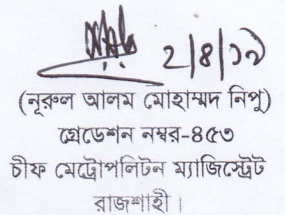 ২/৪/১৯
(নূরুল আলম মোহাম্মদ নিপু)
গ্রেডেশন নম্বর-৪৫৩
চীফ মেট্রোপলিটন ম্যাজিস্ট্রেট
রাজশাহী।